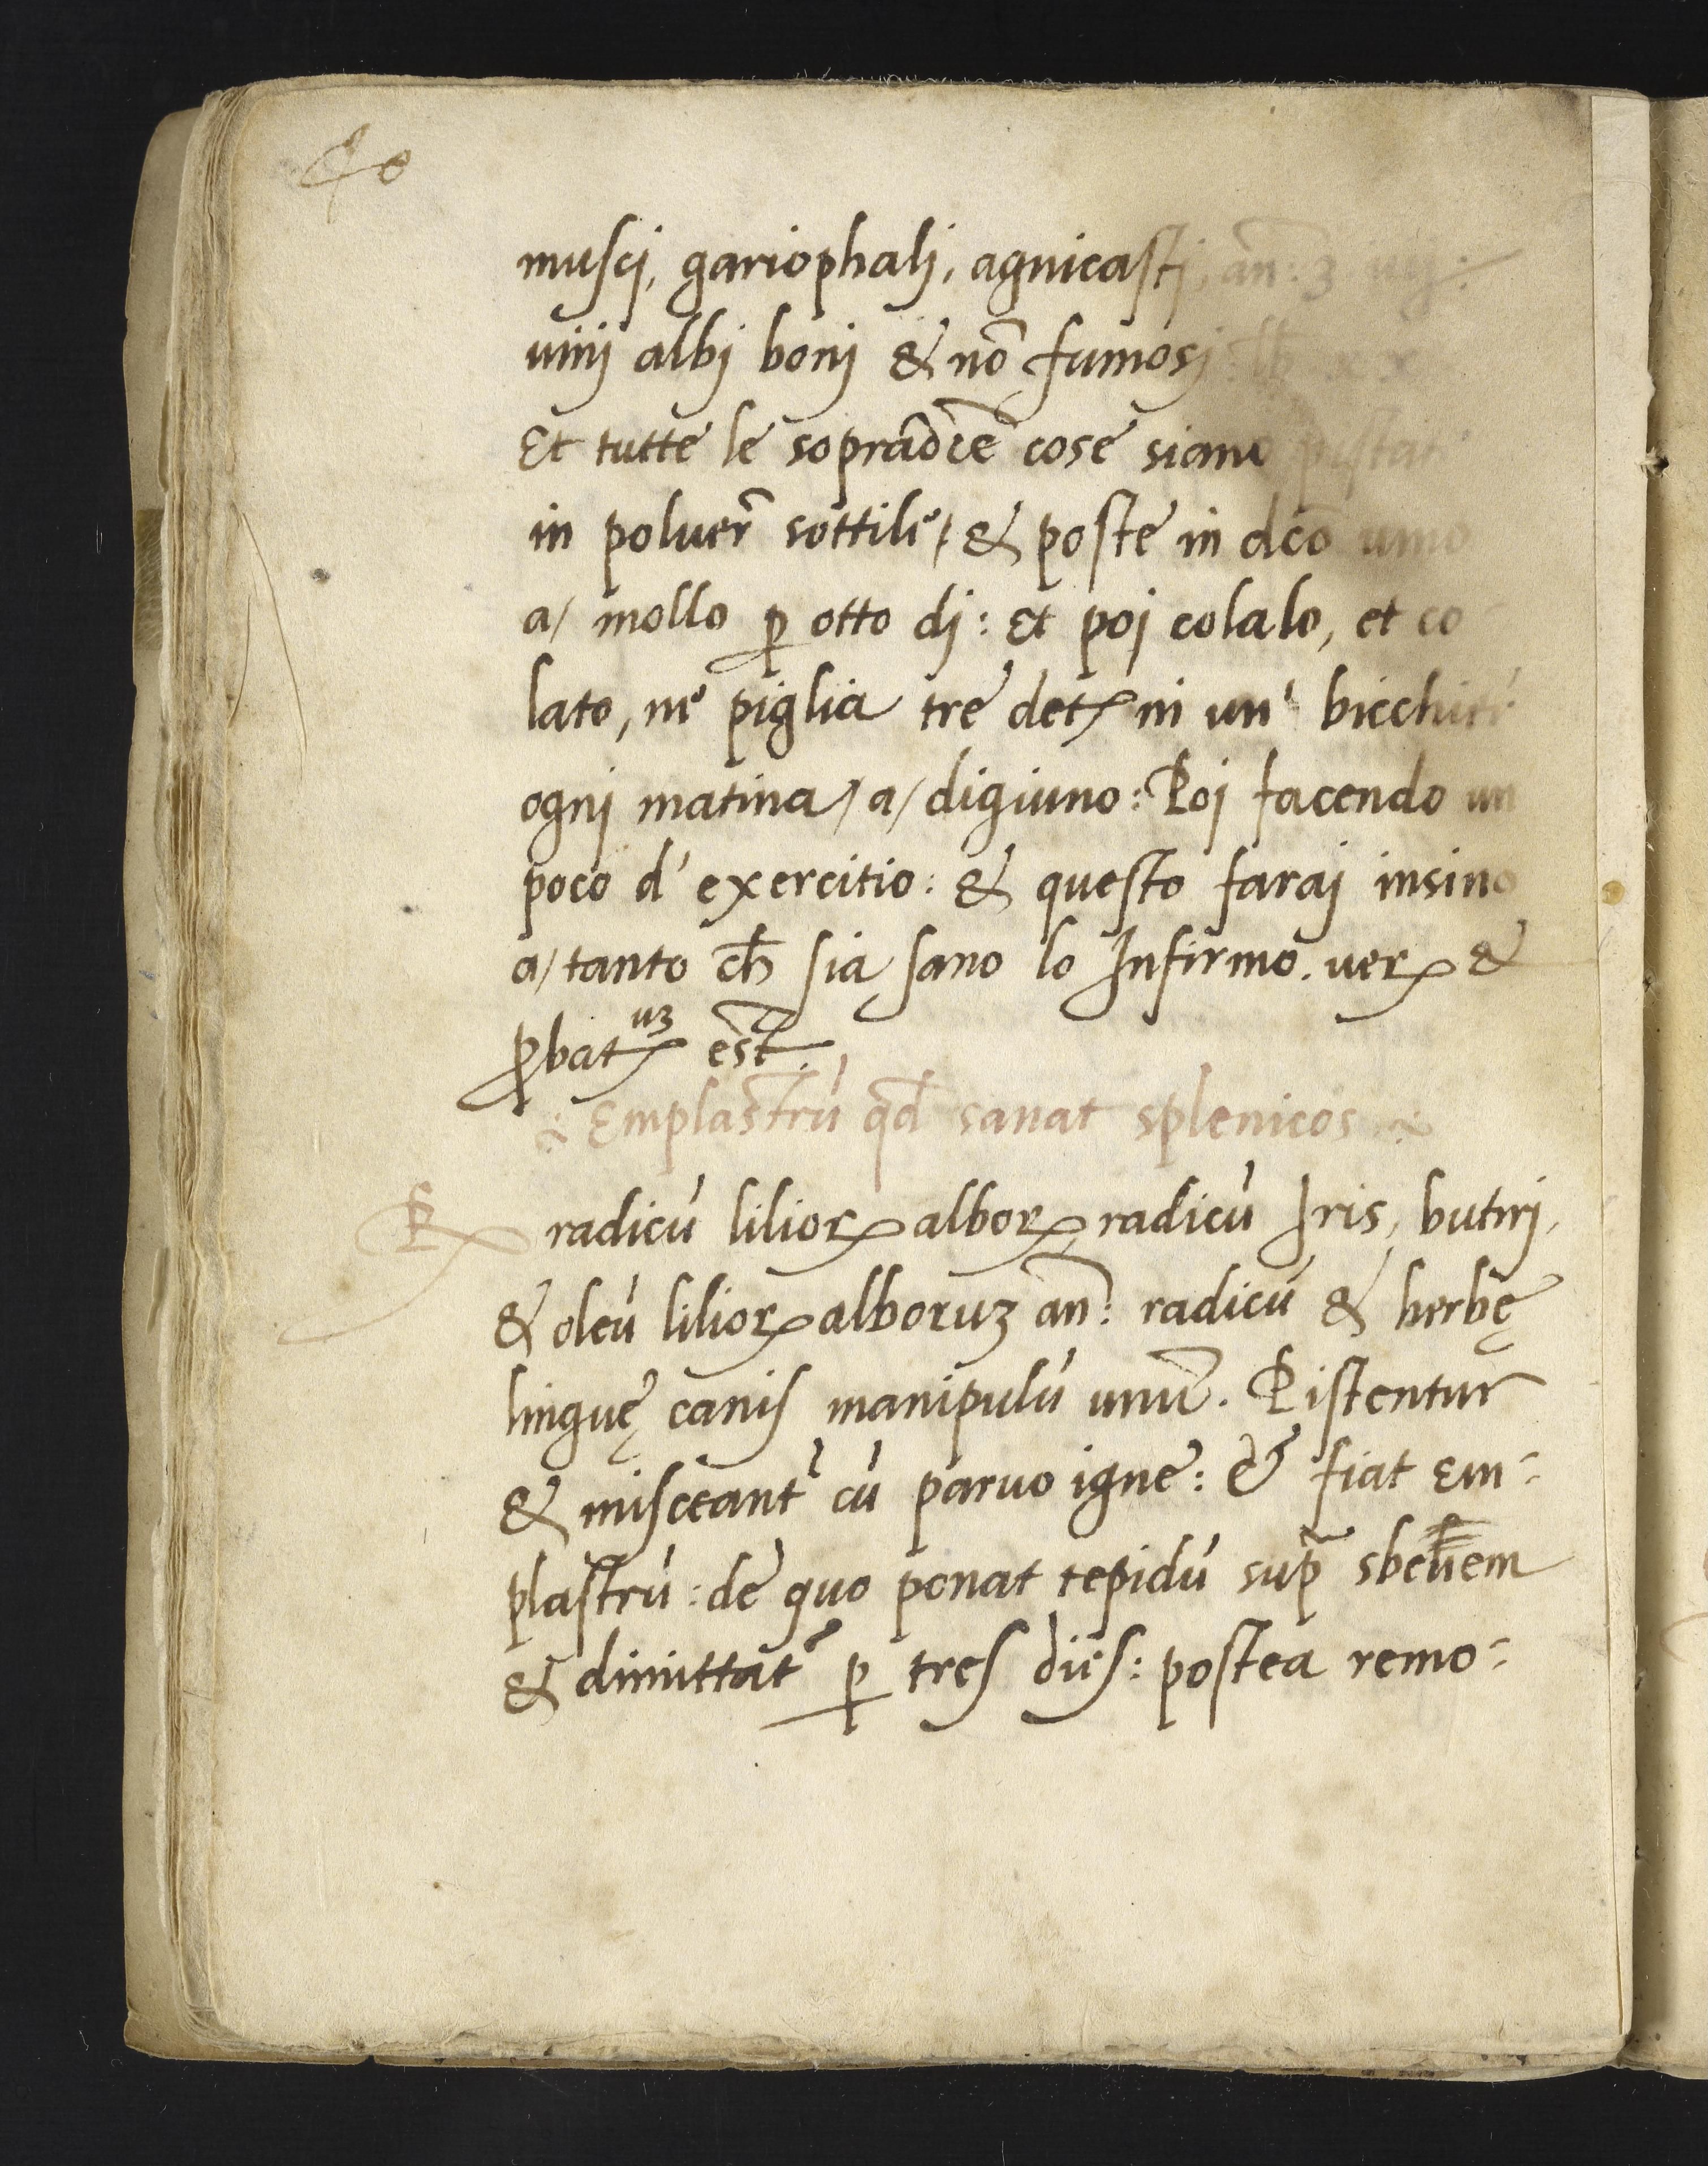 40
muscj, gariophalj, agnicastj, an̄: ʒ
uinj albj bonj & nō fumosj: ℔ x x
Et tutte le sopradc̄e cose siano pistat
in poluer̄ sottile, & poste in dc̄o uino
a/ mollo ꝑ otto dj: Et poj colalo, et co
lato, ne piglia tre detꝝ in un' bicchier
ognj matina, a/ digiuno: Poj facendo un
poco d' exercitio: & questo faraj insino
a/ tanto ch̄ sia sano lo Infirmo. uerꝝ &
ꝓbatꝝ uꝫ est.
Emplastrū qd̄ sanat splenicos
℞ radicū liliorꝝ alborꝝ, radicū Iris, butirj,
& oleū liliorꝝ alboruꝫ an̄: radicū & herbę
linguę canis manipulū unū. Pistentur
& misceant᷑ cū paruo igne: & fiat em-
plastrū: de quo ponat tepidū sup̄
& dimittat᷑ ꝑ tres dies: postea remo-